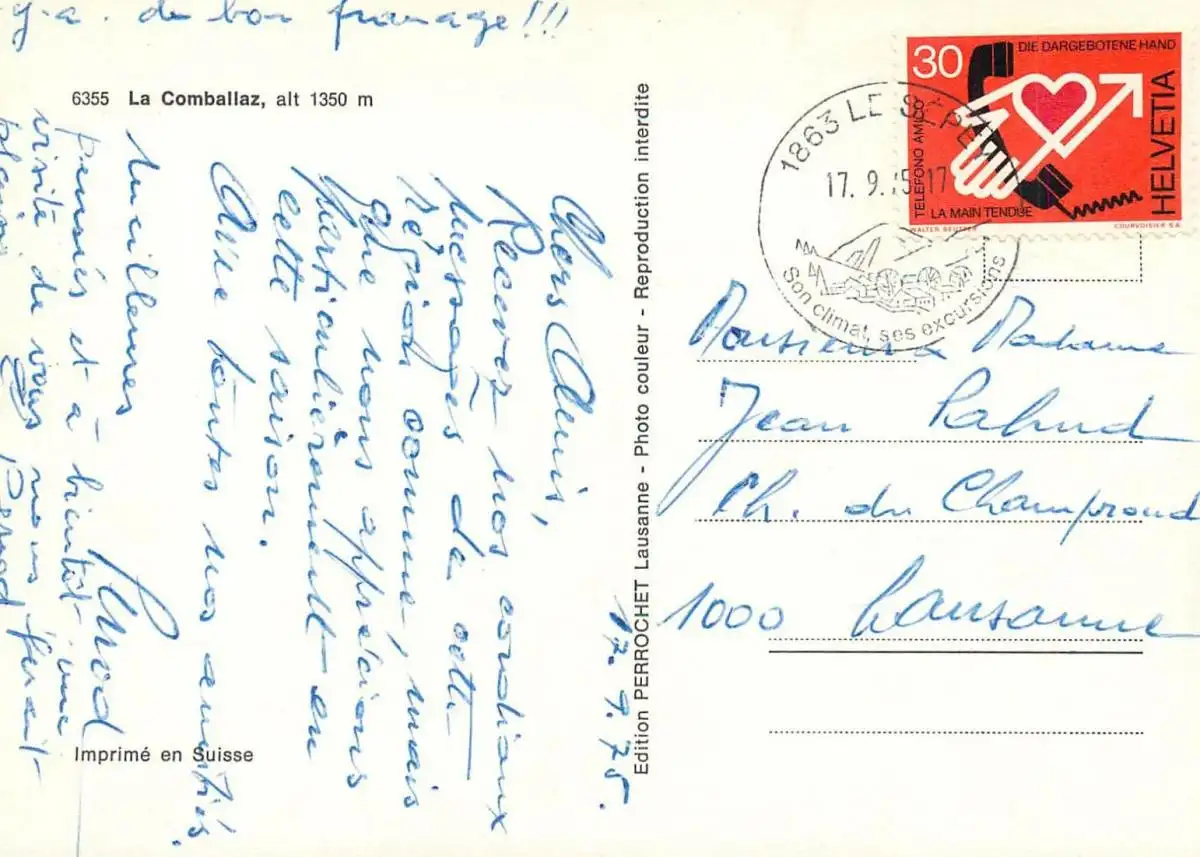 y.a. du bon fromage!!!
6355 La Comballaz, alt 1350 m
17.9.75.
Chers Amis,
Recevez nos cordiaux
messages de cette
région connue, mais
que nous apprécions
particulièrement en
cette saison.
Avec toutes nos amitiés.
Lucillennes
pensées et à bientôt une
visite de vous nous ferait
plaisir
Imprimé en Suisse
Edition PERROCHET Lausanne - Photo couleur - Reproduction interdite
30
DIE DARGEBOTENE HAND
TELEFONO AMICO
LA MAIN TENDUE
HELVETIA
WALTER BEUTTER
COURVOISIER S.A.
1863 LE SEPEY
17. 9. 75-17
Son climat, ses excursions
Monsieur & Madame
Jean Pahud
Ch. du Champrond
1000 Lausanne